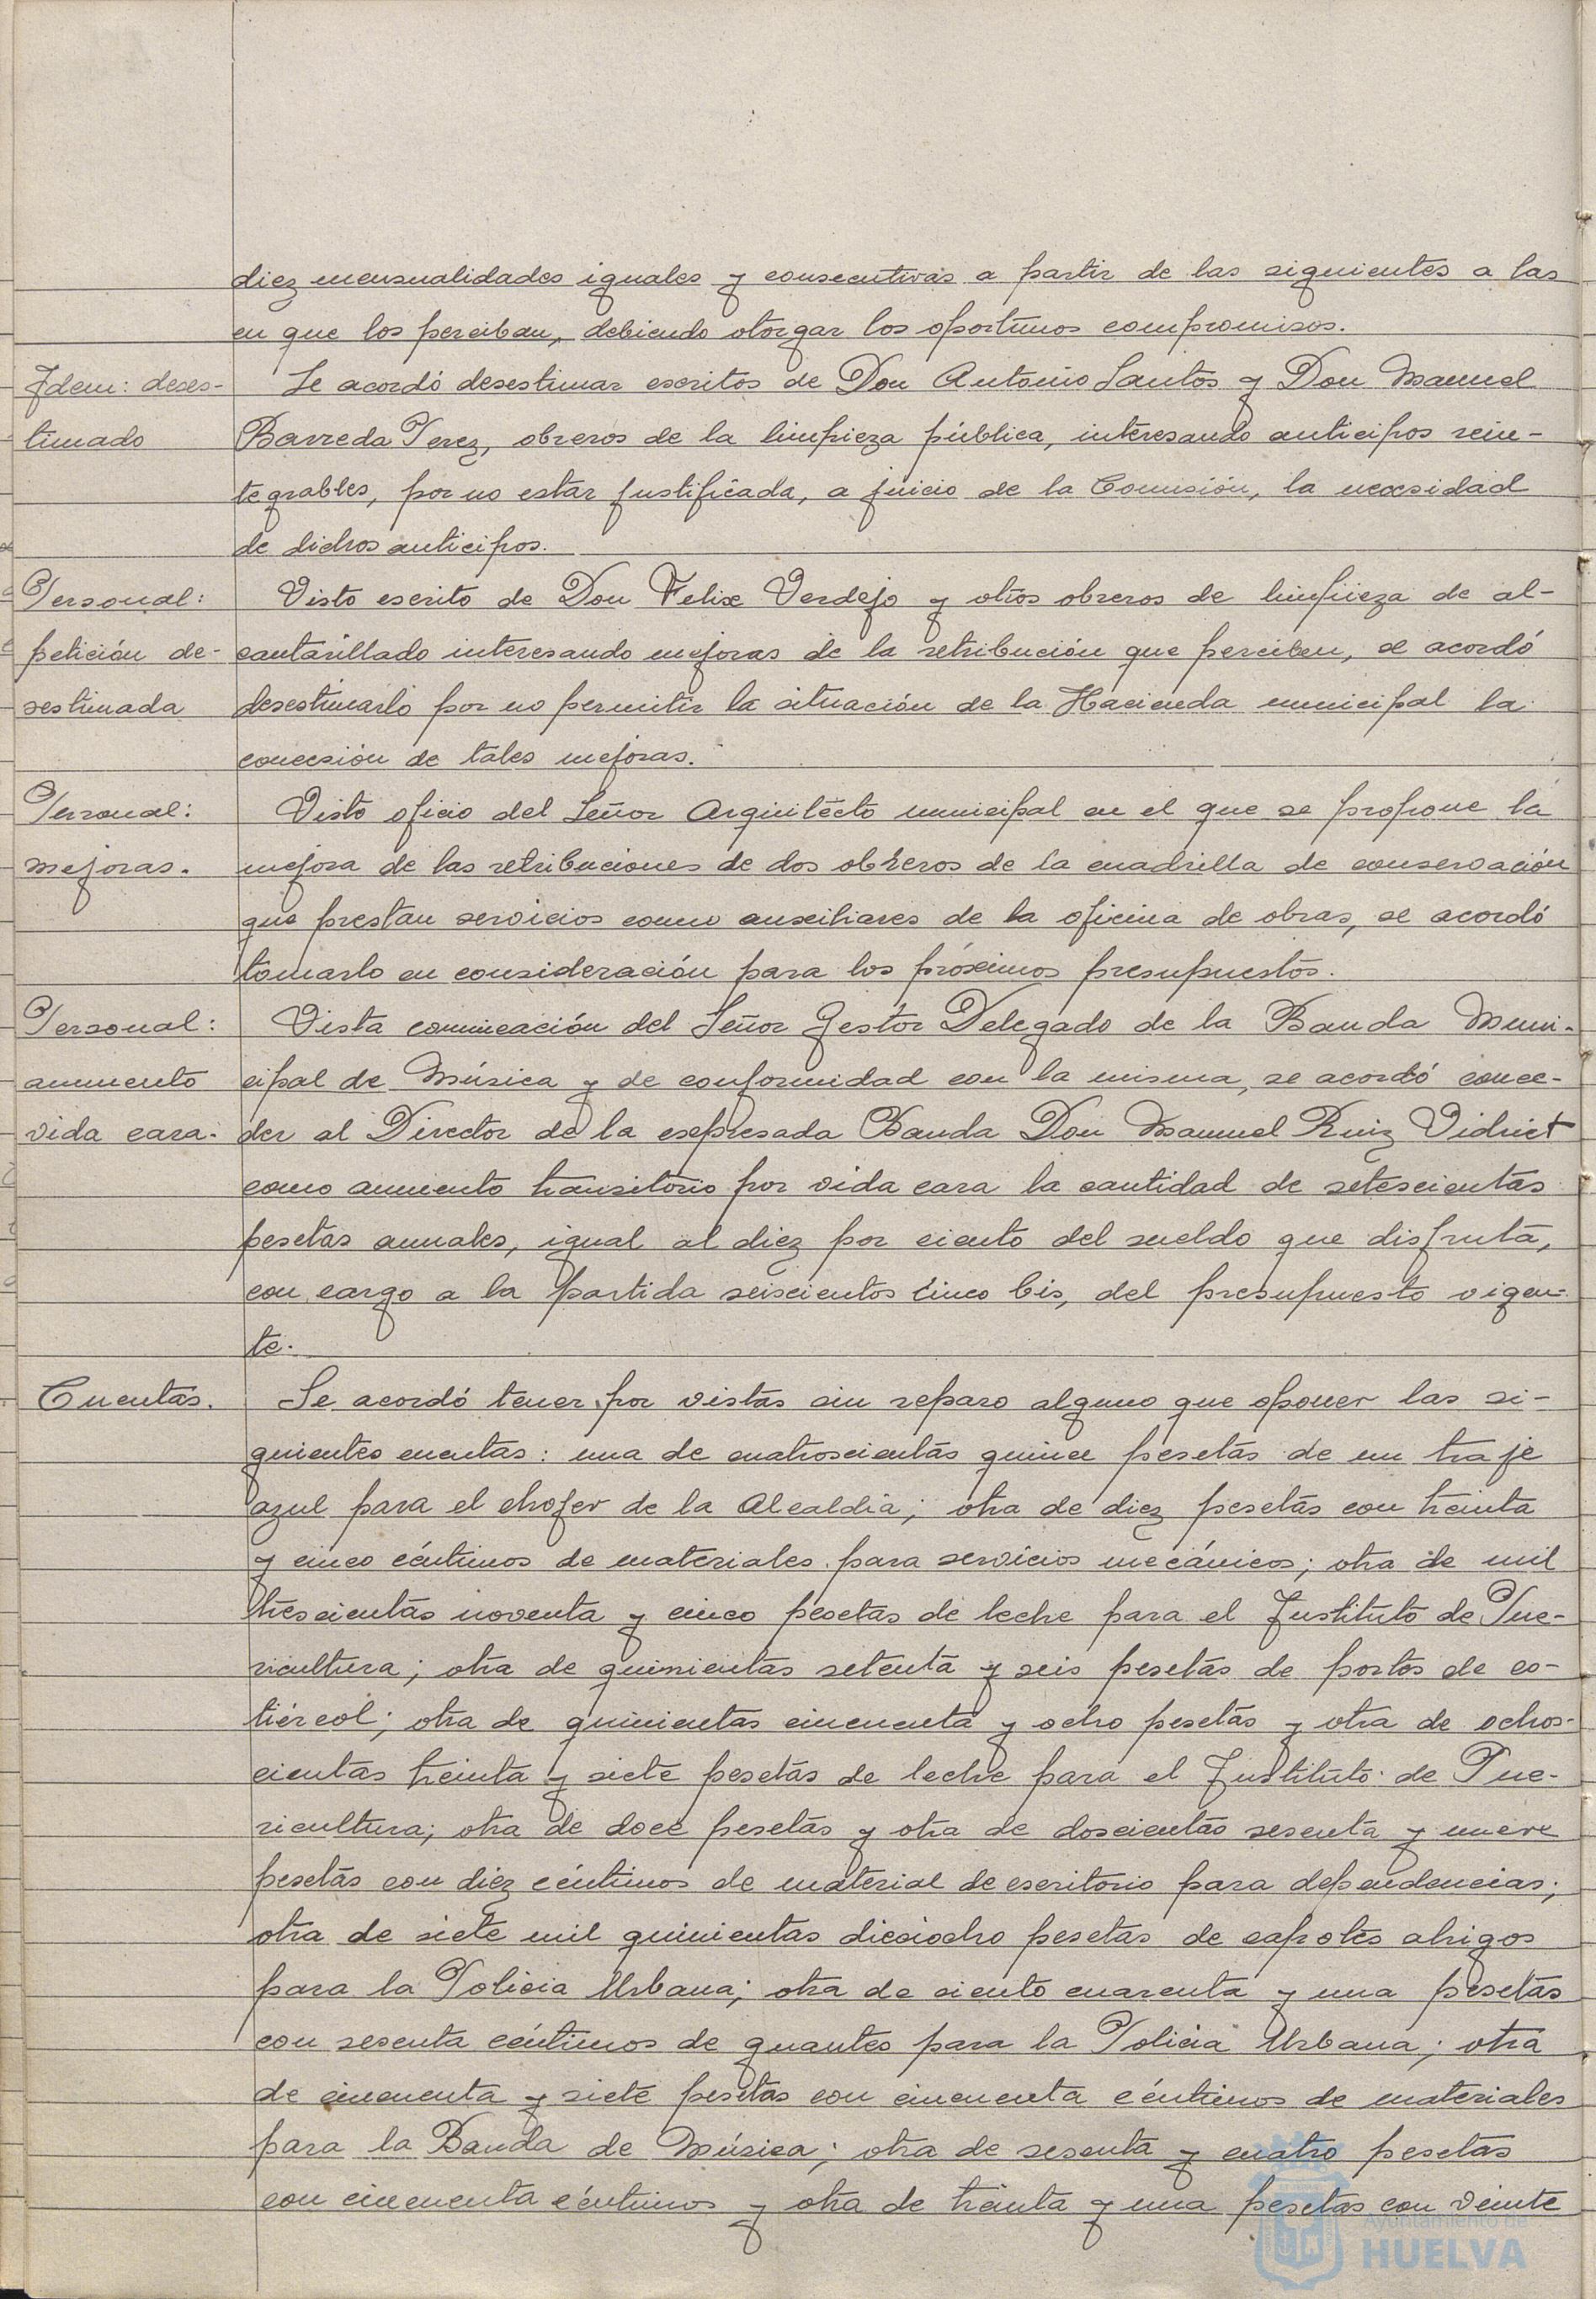 diez mensualidades iguales y consecutivas a partir de las siguientes a las
en que los perciban, debiendo otorgar los oportunos compromisos.
Idem: deses-
timado
Se acordó desestimar escritos de Don Antonio Santos y Don Manuel
Barreda Perez, obreros de la limpieza pública, interesando anticipos rein-
tegrables, por no estar justificada, a juicio de la Comisión, la necesidad
de dichos anticipos.
Personal:
petición de-
sestimada
Visto escrito de Don Felix Verdejo y otros obreros de limpieza de al-
cantarillado interesando mejoras de la retribución que perciben, se acordó
desestimarlo por no permitir la situación de la Hacienda municipal la
concesión de tales mejoras.
Personal:
mejoras.
Visto oficio del Señor Arquitecto municipal en el que se propone la
mejora de las retribuciones de dos obreros de la cuadrilla de conservación
que prestan servicios como auxiliares de la oficina de obras, se acordó
tomarlo en consideración para los próximos presupuestos.
Personal:
aumento
vida cara.
Vista comunicación del Señor Gestor Delegado de la Banda Muni-
cipal de Música y de conformidad con la misma, se acordó conce-
der al Director de la expresada Banda Don Manuel Ruiz Vidriet
como aumento transitorio por vida cara la cantidad de setescientas
pesetas anuales, igual al diez por ciento del sueldo que disfruta,
con cargo a la partida seiscientos cinco bis, del presupuesto vigen-
te.
Cuentas.
Se acordó tener por vistas sin reparo alguno que oponer las si-
guientes cuentas: una de cuatroscientas quince pesetas de un traje
azul para el chofer de la Alcaldia; otra de diez pesetas con treinta
y cinco céntimos de materiales para servicios mecánicos; otra de mil
trescientas noventa y cinco pesetas de leche para el Instituto de Pue-
ricultura; otra de quinientas setenta y seis pesetas de portes de es-
tiércol; otra de quinientas cincuenta y ocho pesetas y otra de ochos-
cientas treinta y siete pesetas de leche para el Instituto de Pue-
ricultura; otra de doce pesetas y otra de doscientas sesenta y nueve
pesetas con diez céntimos de material de escritorio para dependencias;
otra de siete mil quinientas dieciocho pesetas de capotes abrigos
para la Policia Urbana; otra de ciento cuarenta y una pesetas
con sesenta céntimos de guantes para la Policia Urbana; otra
de cincuenta y siete pesetas con cincuenta céntimos de materiales
para la Banda de Música; otra de sesenta y cuatro pesetas
con cincuenta céntimos y otra de treinta y una pesetas con veinte
Ayuntamiento de
HUELVA